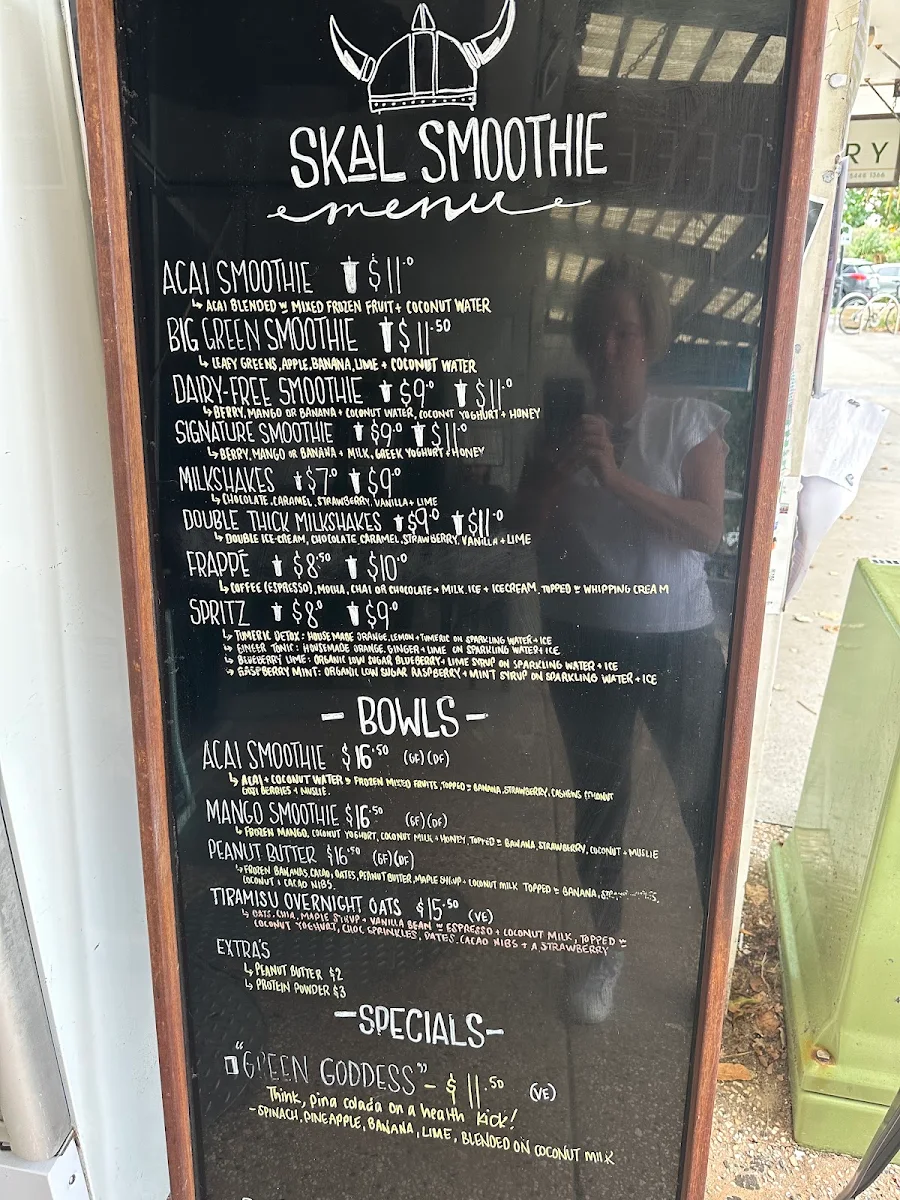 SKAL SMOOTHIE
menu
ACAI SMOOTHIE $11.0
↳ ACAI BLENDED W MIXED FROZEN FRUIT + COCONUT WATER
BIG GREEN SMOOTHIE $11.50
↳ LEAFY GREENS, APPLE, BANANA, LIME + COCONUT WATER
DAIRY-FREE SMOOTHIE $9.0 $11.0
↳ BERRY, MANGO OR BANANA + COCONUT WATER, COCONUT YOGHURT + HONEY
SIGNATURE SMOOTHIE $9.0 $11.0
↳ BERRY, MANGO OR BANANA + MILK, GREEK YOGHURT + HONEY
MILKSHAKES $7.0 $9.0
↳ CHOCOLATE, CARAMEL, STRAWBERRY, VANILLA + LIME
DOUBLE THICK MILKSHAKES $9.0 $11.0
↳ DOUBLE ICE-CREAM, CHOCOLATE, CARAMEL, STRAWBERRY, VANILLA + LIME
FRAPPÉ $8.50 $10.0
↳ COFFEE (ESPRESSO), MOCHA, CHAI OR CHOCOLATE + MILK, ICE + ICECREAM, TOPPED W WHIPPING CREAM
SPRITZ $8.0 $9.0
↳ TUMERIC DETOX: HOUSEMADE ORANGE, LEMON + TUMERIC ON SPARKLING WATER + ICE
↳ GINGER TONIC: HOUSEMADE ORANGE, GINGER + LIME ON SPARKLING WATER + ICE
↳ BLUEBERRY LIME: ORGANIC LOW SUGAR BLUEBERRY + LIME SYRUP ON SPARKLING WATER + ICE
↳ RASPBERRY MINT: ORGANIC LOW SUGAR RASPBERRY + MINT SYRUP ON SPARKLING WATER + ICE
- BOWLS -
ACAI SMOOTHIE $16.50 (GF)(DF)
↳ ACAI + COCONUT WATER W FROZEN MIXED FRUITS, TOPPED W BANANA, STRAWBERRY, CASHEWS, COCONUT
GOJI BERRIES + MUSLIE.
MANGO SMOOTHIE $16.50 (GF)(DF)
↳ FROZEN MANGO, COCONUT YOGHURT, COCONUT MILK + HONEY, TOPPED W BANANA, STRAWBERRY, COCONUT + MUSLIE
PEANUT BUTTER $16.50 (GF)(DF)
↳ FROZEN BANANAS, CACAO, DATES, PEANUT BUTTER, MAPLE SYRUP + COCONUT MILK TOPPED W BANANA,
COCONUT + CACAO NIBS.
TIRAMISU OVERNIGHT OATS $15.50 (VE)
↳ OATS, CHIA, MAPLE SYRUP + VANILLA BEAN W ESPRESSO + COCONUT MILK, TOPPED W
COCONUT YOGHURT, CHOC SPRINKLES, DATES, CACAO NIBS + A STRAWBERRY
EXTRA'S
↳ PEANUT BUTTER $2
↳ PROTEIN POWDER $3
- SPECIALS -
"GREEN GODDESS" - $11.50 (VE)
Think, pina colada on a health kick!
- SPINACH, PINEAPPLE, BANANA, LIME, BLENDED ON COCONUT MILK
RY